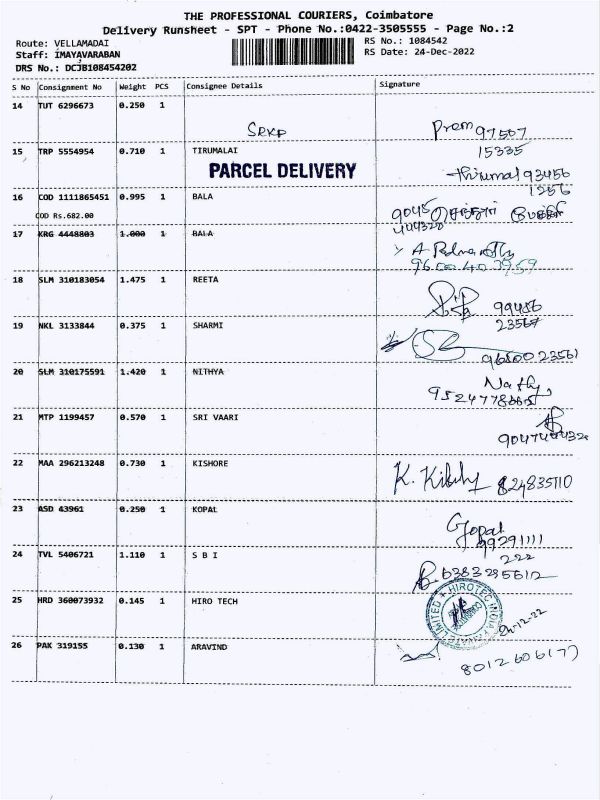 THE PROFESSIONAL COURIERS, Coimbatore
Delivery Runsheet - SPT - Phone No.:0422-3505555 - Page No.:2
Route: VELLAMADAI
Staff: IMAYAVARABAN
DRS No.: DCJB108454202
RS No.: 1084542
RS Date: 24-Dec-2022
S No Consignment No Weight PCS Consignee Details Signature
14 TUT 6296673 0.250 1
Prem 97507
15335
15 TRP 5554954 0.710 1 TIRUMALAI
PARCEL DELIVERY
Thirumal 93456
1256
16 COD 1111865451 0.995 1 BALA
COD Rs.682.00
9045
444320
17 KRG 4448803 1.000 1 BALA
A
9600 40 3959
18 SLM 310183054 1.475 1 REETA
99486
23567
19 NKL 3133844 0.375 1 SHARMI
96500 23561
20 SLM 310175591 1.420 1 NITHYA
21 MTP 1199457 0.570 1 SRI VAARI
22 MAA 296213248 0.730 1 KISHORE
K.
824835110
23 ASD 43961 0.250 1 KOPAL
Gopal
99291111
222
24 TVL 5406721 1.110 1 S B I
6383295612
25 HRD 360073932 0.145 1 HIRO TECH
HIROTEC INDIA PRIVATE LIMITED
24-12-22
26 PAK 319155 0.130 1 ARAVIND
8012606177